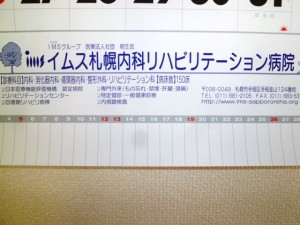 IMSグループ 医療法人社団
ims イムス札幌内科リハビリテーション病院
【診療科目】内科・消化器内科・循環器内科・整形外科・リハビリテーション科【病床数】150床
日本医療機能評価機構 認定病院
リハビリテーションセンター
回復期リハビリ病棟
専門外来(もの忘れ・禁煙・肝臓・頭痛)
特定健診・一般健康診断
内視鏡検査
〒006-0049 札幌市手稲区手稲金山124番地
TEL (011) 681-2105 FAX (011) 68
http://www.ims-sappororeha.org
4 5 6 7 8 9 10 11 12 13 14 15 16 17 18 19 20 21 22 23 24 25 26 27 28